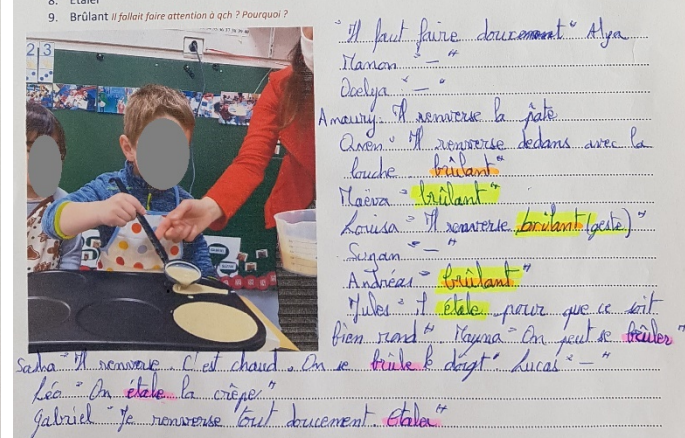 8. Etaler
9. Brûlant Il fallait faire attention à qch ? Pourquoi ?
2 3
"Il faut faire doucement" Alya
Manon "—"
"—"
Amaury: Il renverse la pâte
Owen "Il renverse dedans avec la
louche brûlant"
Maëva "brûlant"
Louisa "Il renverse brûlant (geste)"
Suzan "—"
Andréas "brûlant"
Jules "il étale pour que ce soit
bien rond" Mayna "On peut se brûler"
Sacha "Il renverse. C'est chaud. On se brûle le doigt" Lucas "—"
Léo "On étale la crêpe"
Gabriel "Je renverse tout doucement. étaler"